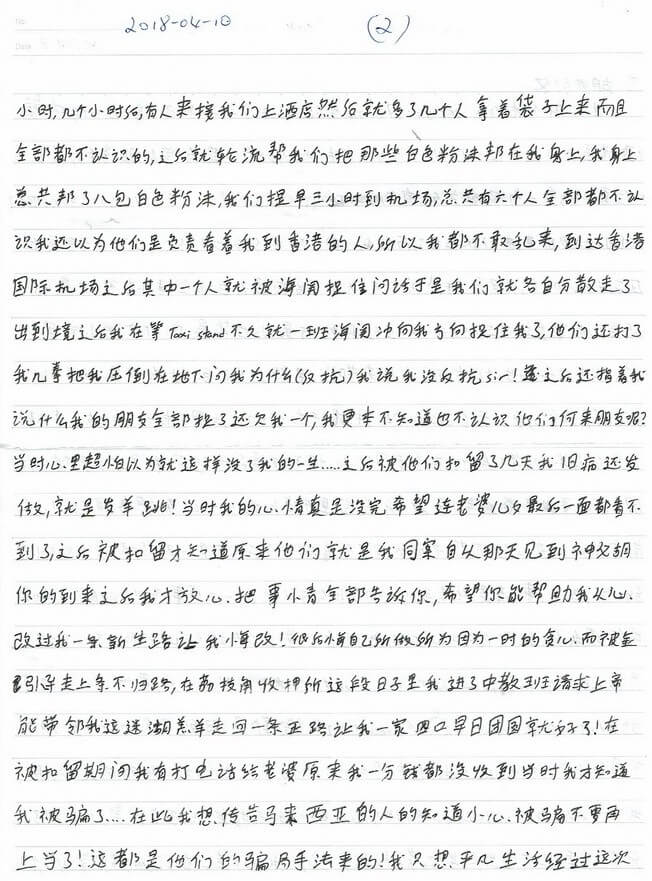 No.
Date
2018-04-10 (2)
小时,几个小时后,有人来接我们上酒店然后就多了几个人拿着袋子上来而且
全部都不认识的,之后就轮流帮我们把那些白色粉沫邦在我身上,我身上
总共邦了八包白色粉沫,我们提早三小时到机场,总共有六个人全部都不认
识我还以为他们是负责看着我到香港的人,所以我都不敢乱来,到达香港
国际机场之后其中一个人就被海关捉住问话于是我们就各自分散走了
出到境之后我在等Taxi stand不久就一班海关冲向我方向捉住我了,他们还打了
我几拳把我压倒在地下问我为什么(反抗)我说我没反抗sir!之后还指着我
说什么我的朋友全部捉了还欠我一个,我更本不知道也不认识他们何来朋友呢?
当时心里超怕以为就这样没了我的一生.....之后被他们扣留了几天我旧病还发
做,就是发羊跳!当时我的心情真是没完希望连老婆儿女最后一面都看不
到了,之后被扣留才知道原来他们就是我同案自从那天见到神父胡
你的到来之后我才放心把事情全部告诉你,希望你能帮助我从心
改过我一条新生路让我悔改!很后悔自己所做所为因为一时的贪心而被金
引导走上条不归路,在荔枝角收押所这段日子里我进了中教班请求上帝
能带领我这迷湖羔羊走回一条正路让我一家四口早日团圆就好了!在
被扣留期间我有打电话给老婆原来我一分钱都没收到当时我才知道
我被骗了....在此我想传告马来西亚的人的知道小心被骗不要再
上当了!这都是他们的骗局手法来的!我只想平凡生活经过这次